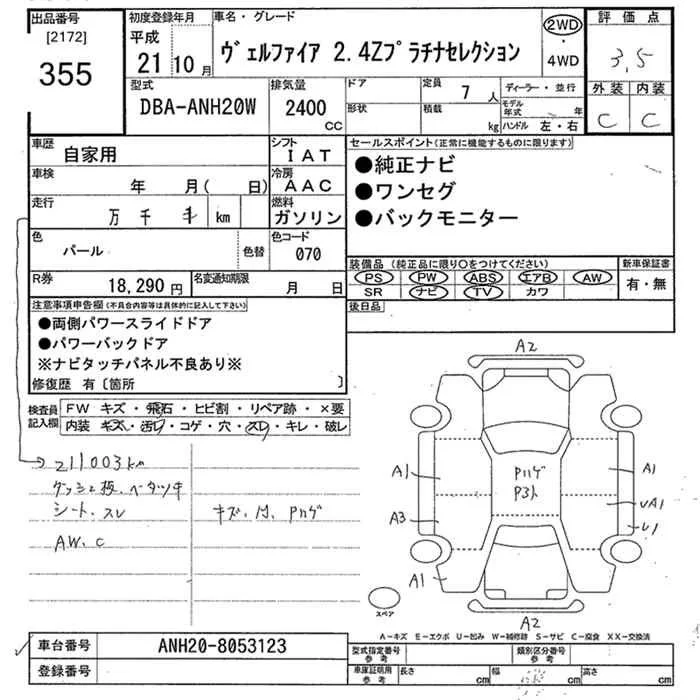 出品番号
[2172]
355
初度登録年月
平成
21 10 月
車名・グレード
ヴェルファイア 2.4Zプラチナセレクション
2WD
・
4WD
評価点
3,5
外装 内装
C C
型式
DBA-ANH20W
排気量
2400
CC
ドア
形状
定員
7 人
積載
kg
ディーラー・並行
モデル年式 年
ハンドル 左・右
車歴
自家用
シフト
IAT
車検
年 月( 日)
冷房
AAC
走行
万 千 km
燃料
ガソリン
色
パール
色替
色コード
070
R券
18,290 円
名変通知期限
月 日
セールスポイント(正常に機能するものに限ります)
●純正ナビ
●ワンセグ
●バックモニター
装備品 (純正品に限り○をつけてください)
PS PW ABS エアB AW
SR ナビ TV カワ
新車保証書
有・無
後日品
注意事項申告欄(不具合内容等は具体的に記入して下さい)
●両側パワースライドドア
●パワーバックドア
※ナビタッチパネル不良あり※
修復歴 有〔箇所 〕
検査員記入欄
FW キズ・飛石・ヒビ割・リペア跡・×要
内装 キズ・汚レ・コゲ・穴・スレ・キレ・破レ
211003km
シート、スレ
AW、C
A2
A1
A3
A1
Pハゲ
A1
UA1
U1
A2
スペア
A-キズ E-エクボ U-凹み W-補修跡 S-サビ C-腐食 XX-交換済
車台番号
ANH20-8053123
登録番号
型式指定番号
参考
類別区分番号
参考
車庫証明用
参考
長さ cm
幅 cm
高さ cm